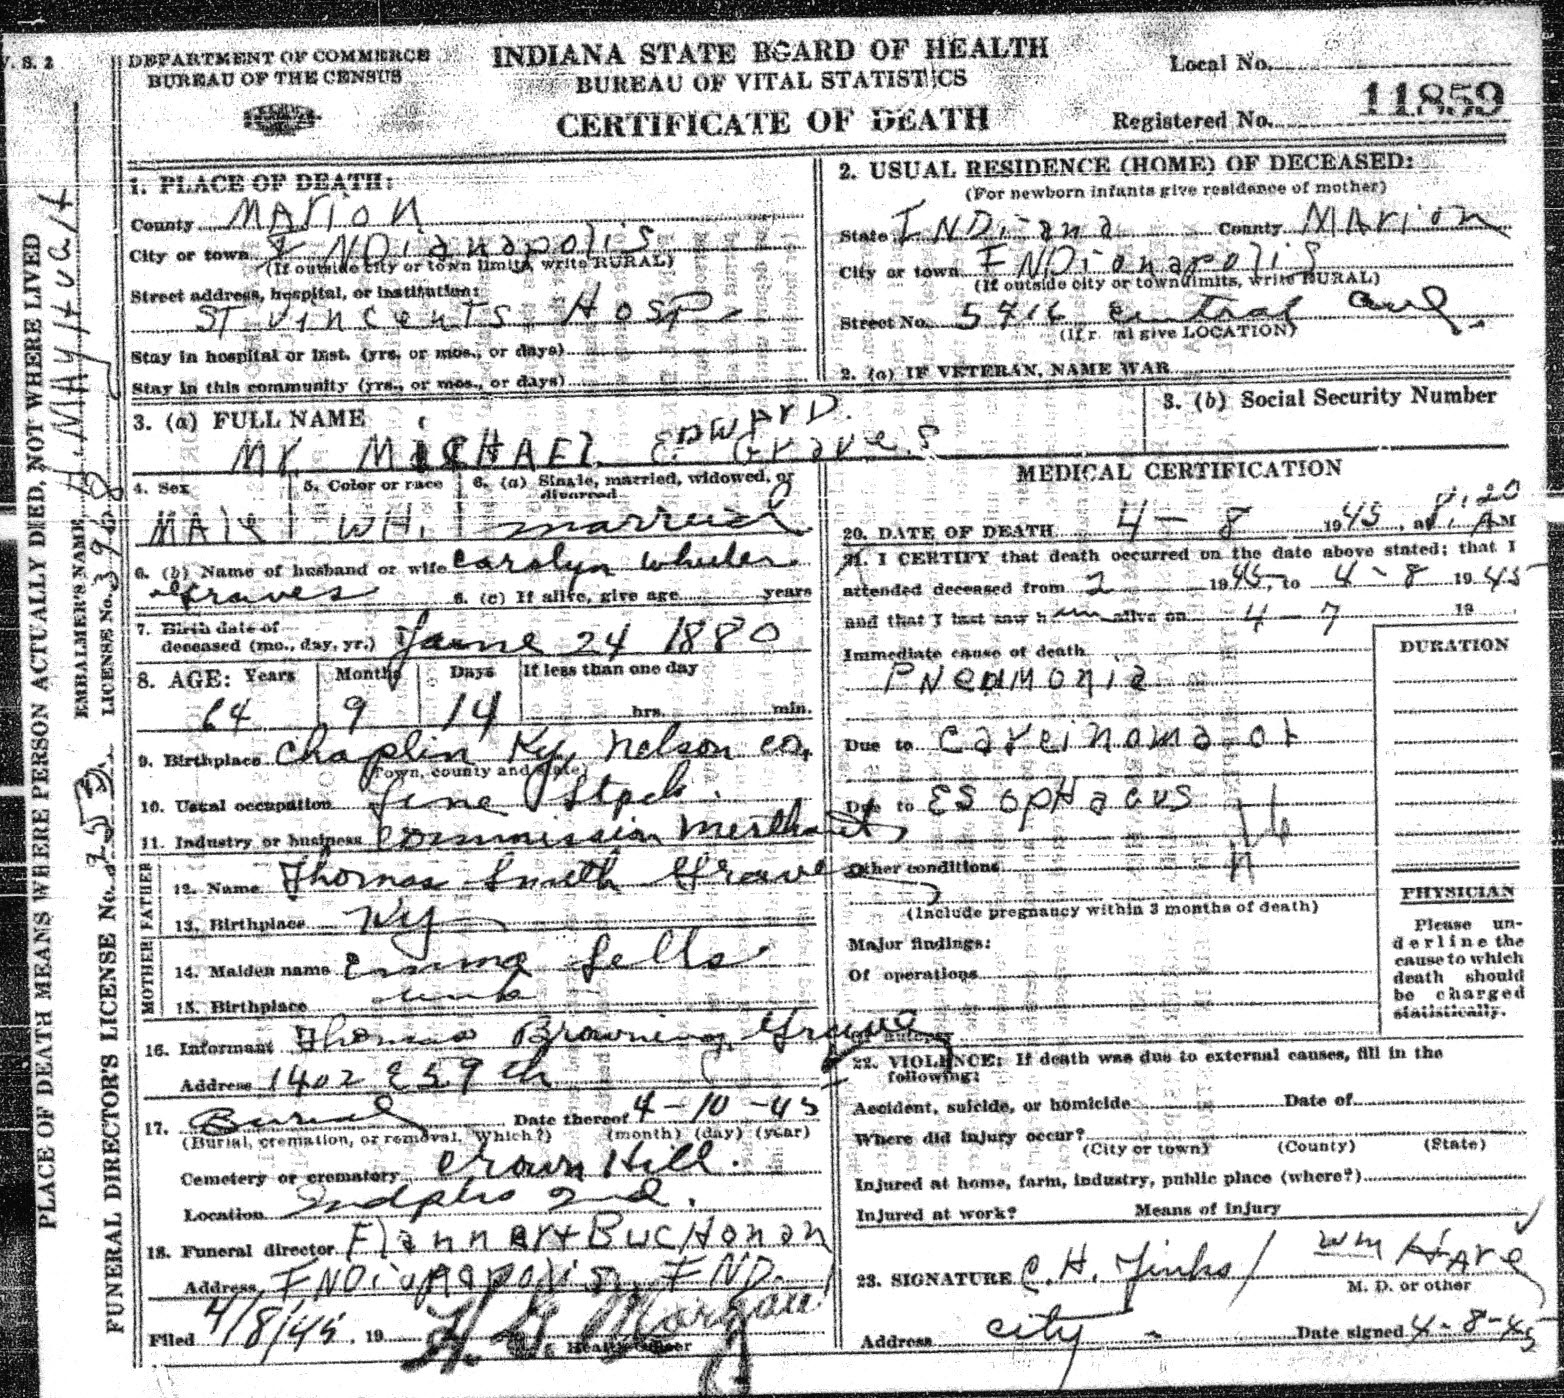 V. S. 2
DEPARTMENT OF COMMERCE
BUREAU OF THE CENSUS
INDIANA STATE BOARD OF HEALTH
BUREAU OF VITAL STATISTICS
CERTIFICATE OF DEATH
Local No.
Registered No. 11859
PLACE OF DEATH MEANS WHERE PERSON ACTUALLY DIED, NOT WHERE LIVED
EMBALMER'S NAME
LICENSE No.
FUNERAL DIRECTOR'S LICENSE No.
1. PLACE OF DEATH:
County Marion
City or town INDianapolis
(If outside city or town limits, write RURAL)
Street address, hospital, or institution:
ST Vincents Hosp.
Stay in hospital or inst. (yrs. or mos., or days)
Stay in this community (yrs., or mos., or days)
2. USUAL RESIDENCE (HOME) OF DECEASED:
(For newborn infants give residence of mother)
State INDiana County Marion
City or town INDianapolis
(If outside city or town limits, write RURAL)
Street No. Central Ave.
(If r al give LOCATION)
2. (a) IF VETERAN, NAME WAR
3. (a) FULL NAME
Mr. MICHAEL EDWARD. Graves
3. (b) Social Security Number
4. Sex
5. Color or race
6. (a) Single, married, widowed, or divorced
Male WH. married
6. (b) Name of husband or wife Carolyn Wheeler
Graves
6. (c) If alive, give age years
7. Birth date of
deceased (mo., day, yr.) June 24 1880
8. AGE: Years Months Days If less than one day
64 9 14 hrs. min.
9. Birthplace Chaplin Ky, Nelson Co,
(Town, county and state)
10. Usual occupation Live Stock.
11. Industry or business Commission Merchant
FATHER
12. Name Thomas Smith Graves
13. Birthplace Ky
MOTHER
14. Maiden name Emma Sells
15. Birthplace unk
16. Informant Thomas Browning Graves
Address 1402 E 59 th
17. Burial Date thereof 4-10-45
(Burial, cremation, or removal. Which?) (month) (day) (year)
Cemetery or crematory Crown Hill.
Location Indpls Ind.
18. Funeral director Flanner + Buchanan
Address INDianapolis, IND.
Filed 4/8/45, 19
Health Officer
MEDICAL CERTIFICATION
20. DATE OF DEATH 4 - 8 1945, at 8:20 AM
21. I CERTIFY that death occurred on the date above stated; that I
attended deceased from 2 1945, to 4-8 1945
and that I last saw him alive on 4-7 19
Immediate cause of death
Pneumonia
Due to Carcinoma of
Due to Esophagus
Other conditions
(Include pregnancy within 3 months of death)
Major findings:
Of operations
DURATION
PHYSICIAN
Please un-
derline the
cause to which
death should
be charged
statistically.
22. VIOLENCE: If death was due to external causes, fill in the
following:
Accident, suicide, or homicide Date of
Where did injury occur?
(City or town) (County) (State)
Injured at home, farm, industry, public place (where?)
Injured at work? Means of injury
23. SIGNATURE C. H. Jinks / Wm Hare
M. D. or other
Address City Date signed 4-8-45